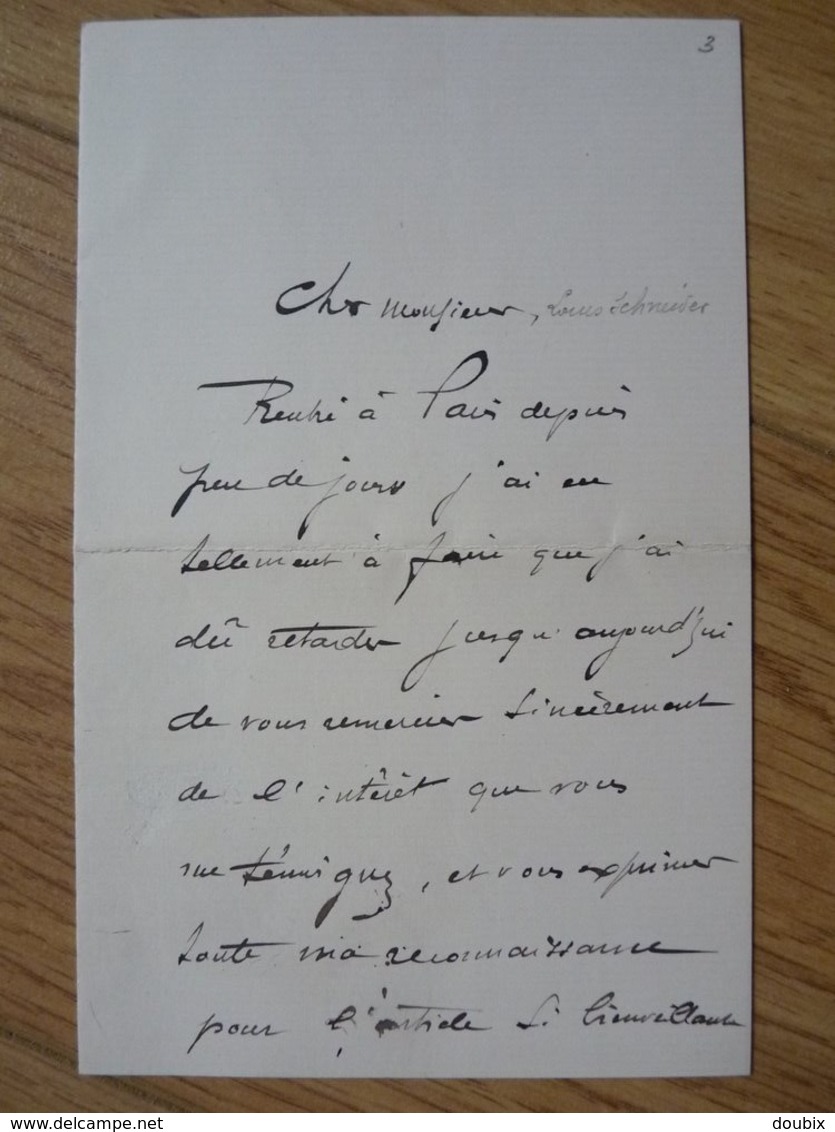 3
Cher monsieur, Louis Schneider
Rentré à Paris depuis
peu de jours j'ai eu
tellement à faire que j'ai
dû retarder jusqu'aujourd'hui
de vous remercier sincèrement
de l'intérêt que vous
me témoignez, et vous exprimer
toute ma reconnaissance
pour l'article si bienveillant
www.delcampe.net
doubix